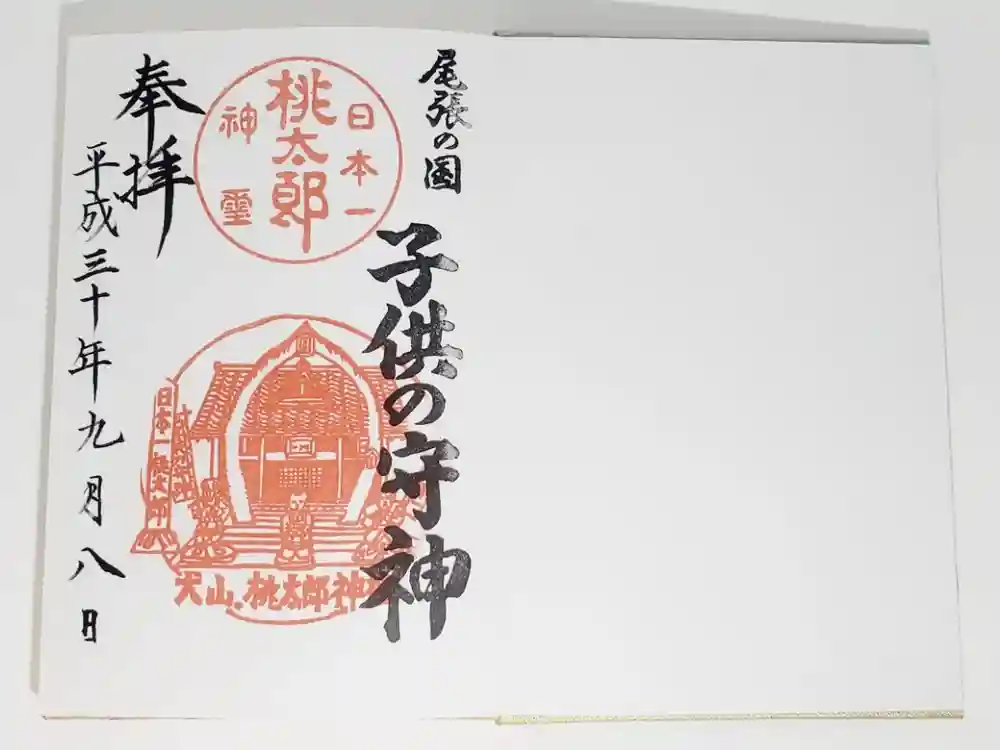 尾張の国
子供の守神
日本一
桃太郎
神璽
日本一桃太郎
犬山・桃太郎神
奉拝
平成三十年九月八日